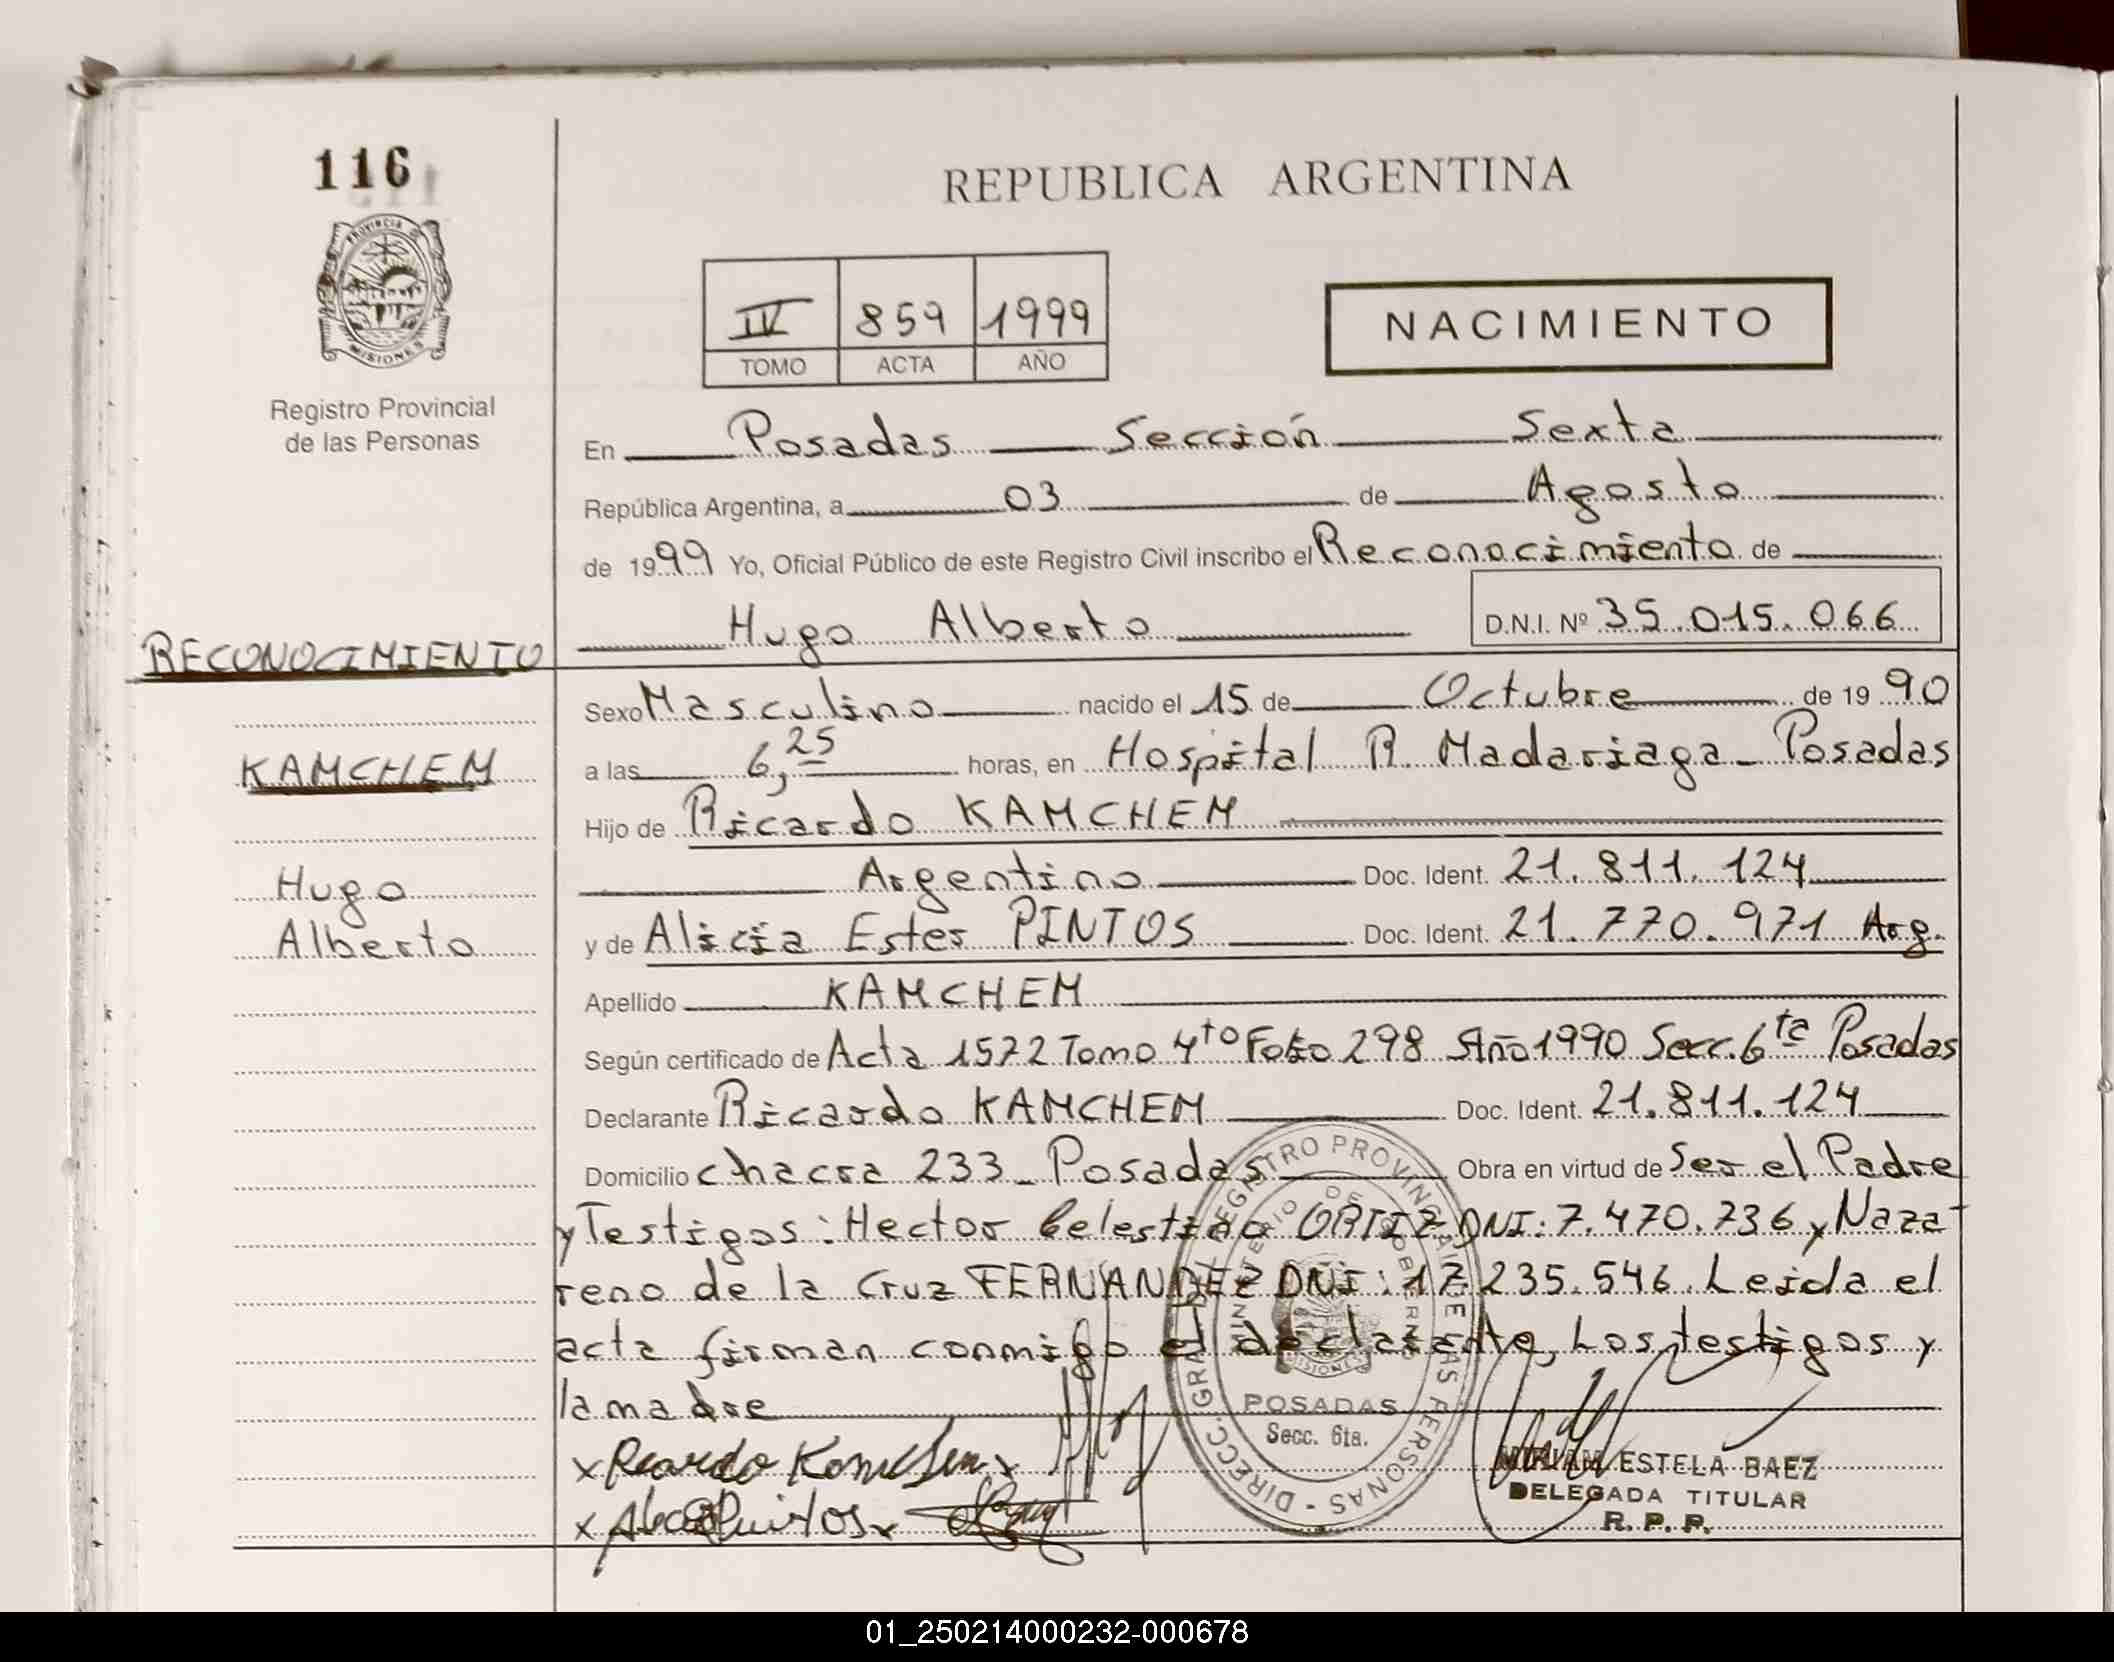 116
REPUBLICA ARGENTINA
PROVINCIA DE
MISIONES
Registro Provincial
de las Personas
IV 859 1999
TOMO ACTA AÑO
NACIMIENTO
En Posadas Sección Sexta
República Argentina, a 03 de Agosto
de 1999 Yo, Oficial Público de este Registro Civil inscribo el Reconocimiento de
Hugo Alberto D.N.I. Nº 35.015.066
RECONOCIMIENTO
Sexo Masculino nacido el 15 de Octubre de 1990
KAMCHEM
a las 6,25 horas, en Hospital R. Madariaga - Posadas
Hijo de Ricardo KAMCHEM
Hugo
Argentino Doc. Ident. 21.811.124
Alberto
y de Alicia Ester PINTOS Doc. Ident. 21.770.971 Arg.
Apellido KAMCHEM
Según certificado de Acta 1572 Tomo 4to Folio 298 Año 1990 Secc. 6ta Posadas
Declarante Ricardo KAMCHEM Doc. Ident. 21.811.124
Domicilio chacra 233 - Posadas Obra en virtud de Ser el Padre
y Testigos: Hector Celestino ORTIZ DNI: 7.470.736 y Naza-
reno de la Cruz FERNANDEZ DNI: 17.235.546. Leida el
acta firman conmigo el declarante, Los testigos y
la madre
DIRECC. GRAL. REGISTRO PROVINCIAL DE LAS PERSONAS
MINISTERIO DE GOBIERNO
MISIONES
POSADAS
Secc. 6ta.
MIRIAM ESTELA BAEZ
DELEGADA TITULAR
R. P. P.
01_250214000232-000678